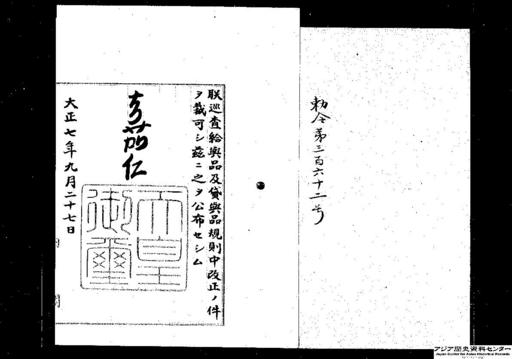 勅令第三百六十二号
朕巡査給與品及貸與品規則中改正ノ件
ヲ裁可シ茲ニ之ヲ公布セシム
嘉仁
天皇御璽
大正七年九月二十七日
アジア歴史資料センター
Japan Center for Asian Historical Records